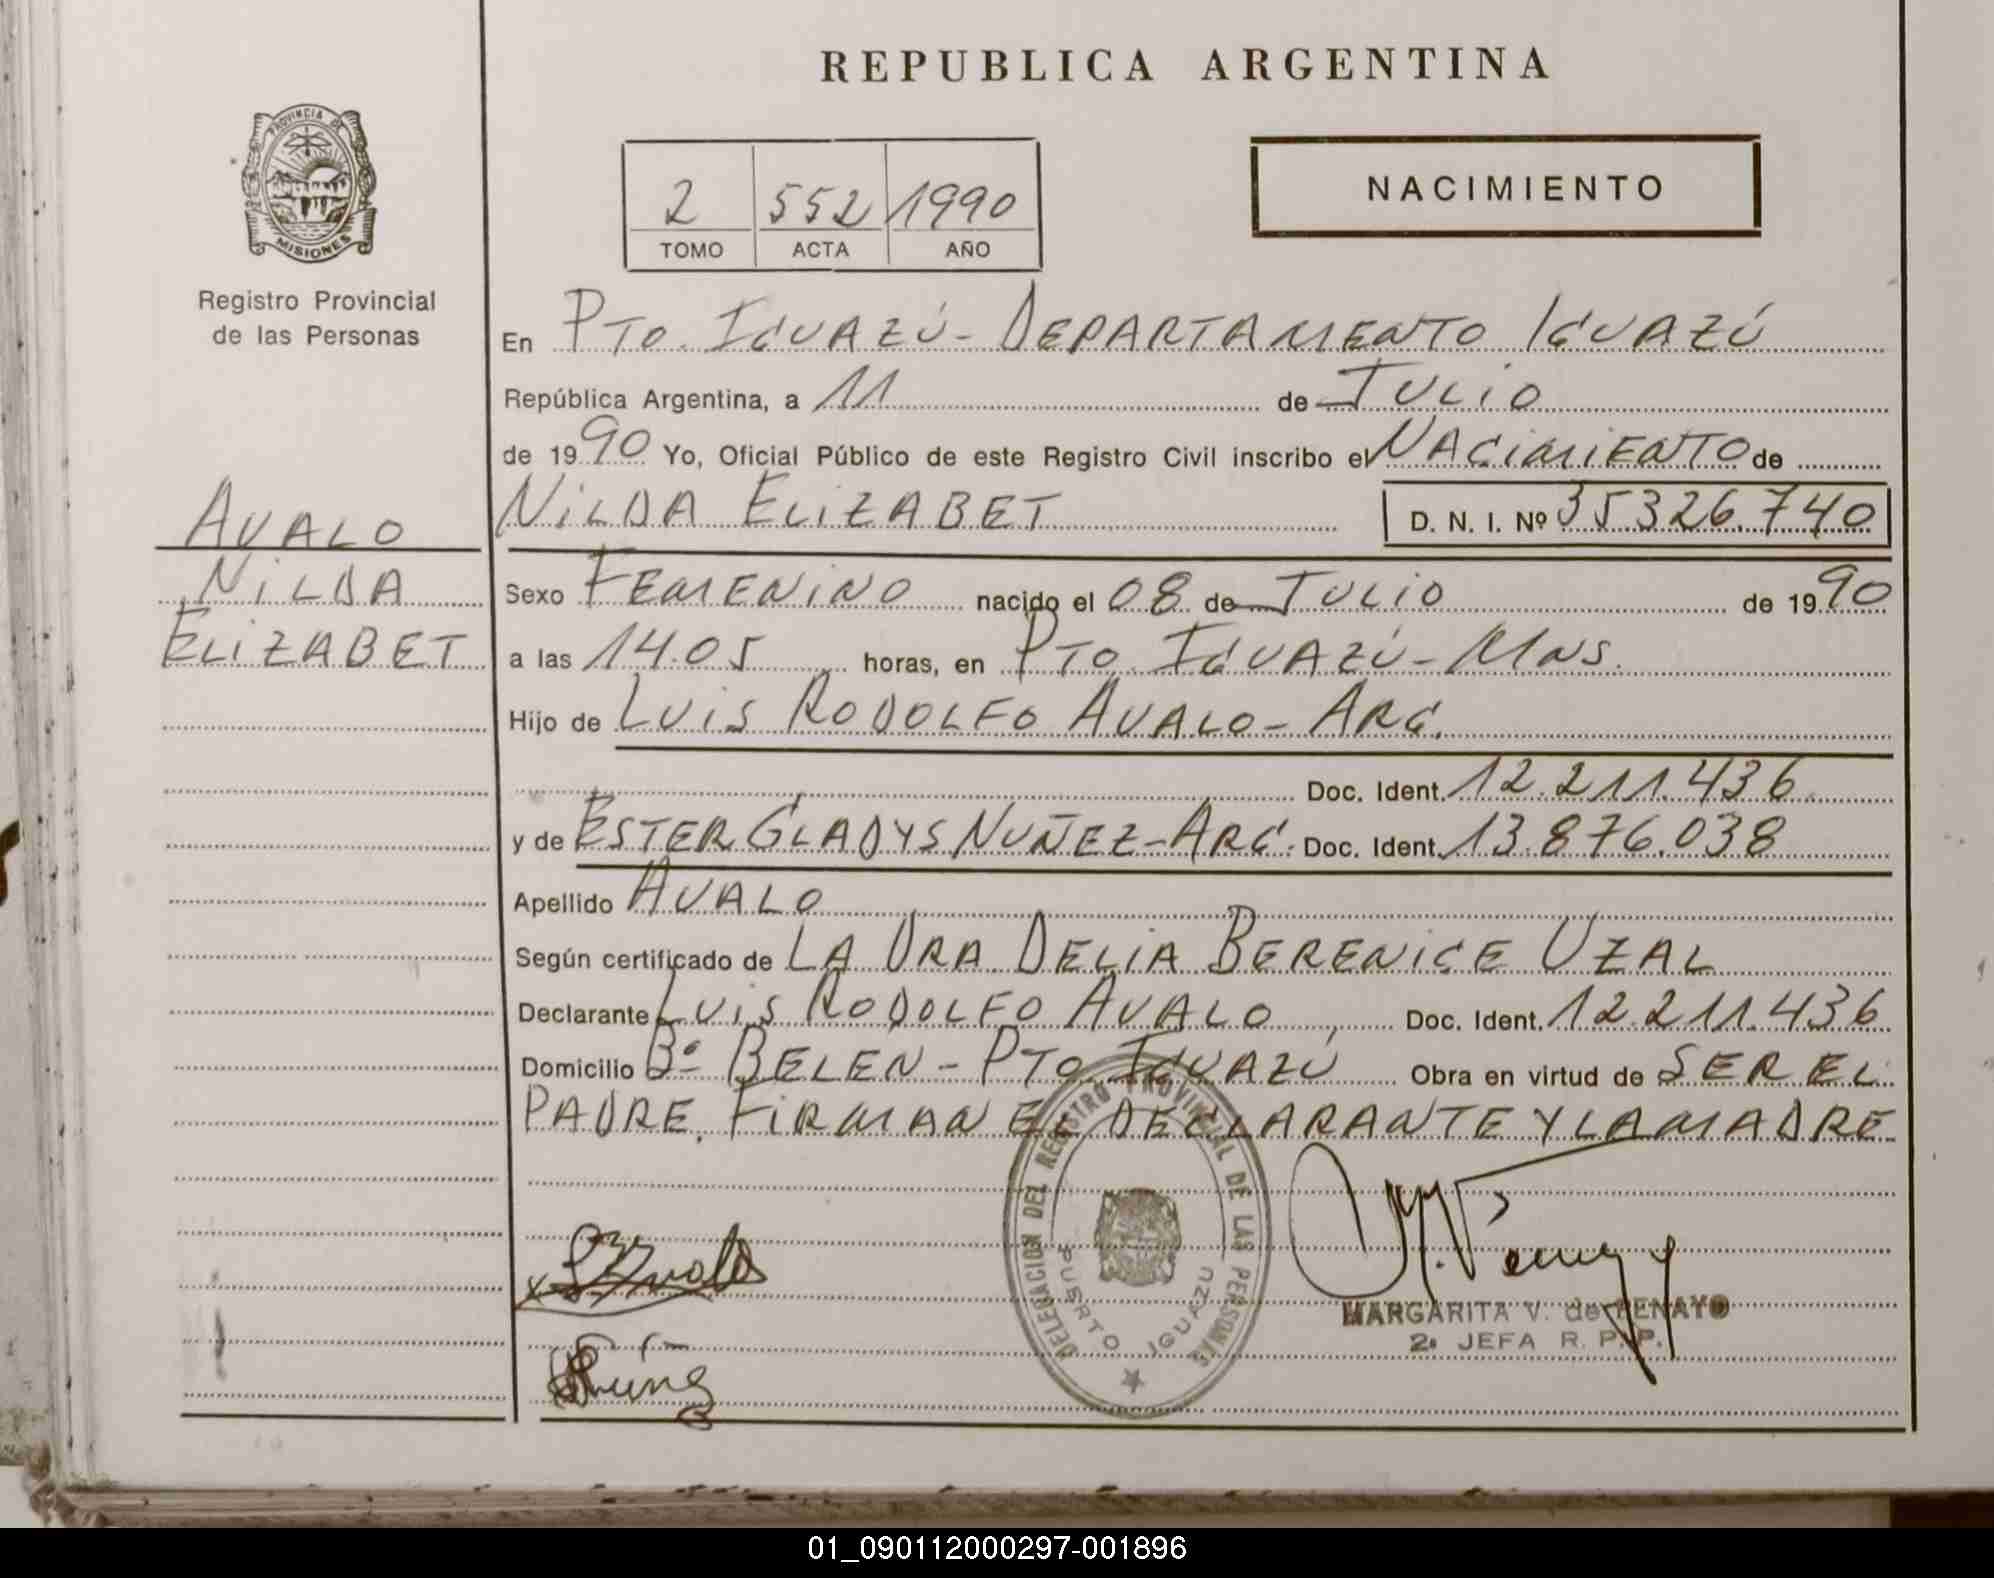 REPUBLICA ARGENTINA
PROVINCIA DE
MISIONES
Registro Provincial
de las Personas
2 552 1990
TOMO ACTA AÑO
NACIMIENTO
En PTO. IGUAZÚ - DEPARTAMENTO IGUAZÚ
República Argentina, a 11 de JULIO
de 1990 Yo, Oficial Público de este Registro Civil inscribo el NACIMIENTO de
NILDA ELIZABET D. N. I. Nº 35326.740
AVALO
NILDA
ELIZABET
Sexo FEMENINO nacido el 08 de JULIO de 1990
a las 14.05 horas, en PTO. IGUAZÚ - MNS.
Hijo de LUIS RODOLFO AVALO - ARG.
Doc. Ident. 12.211.436
y de ESTER GLADYS NUÑEZ - ARG. Doc. Ident. 13.876.038
Apellido AVALO
Según certificado de LA DRA DELIA BERENICE UZAL
Declarante LUIS RODOLFO AVALO Doc. Ident. 12.211.436
Domicilio Bº BELEN - PTO IGUAZÚ Obra en virtud de SER EL
PADRE. FIRMAN EL DECLARANTE Y LA MADRE
DELEGACION DEL REGISTRO PROVINCIAL DE LAS PERSONAS
PUERTO IGUAZU
MARGARITA V. de PENAYO
2ª JEFA R. P. P.
01_090112000297-001896